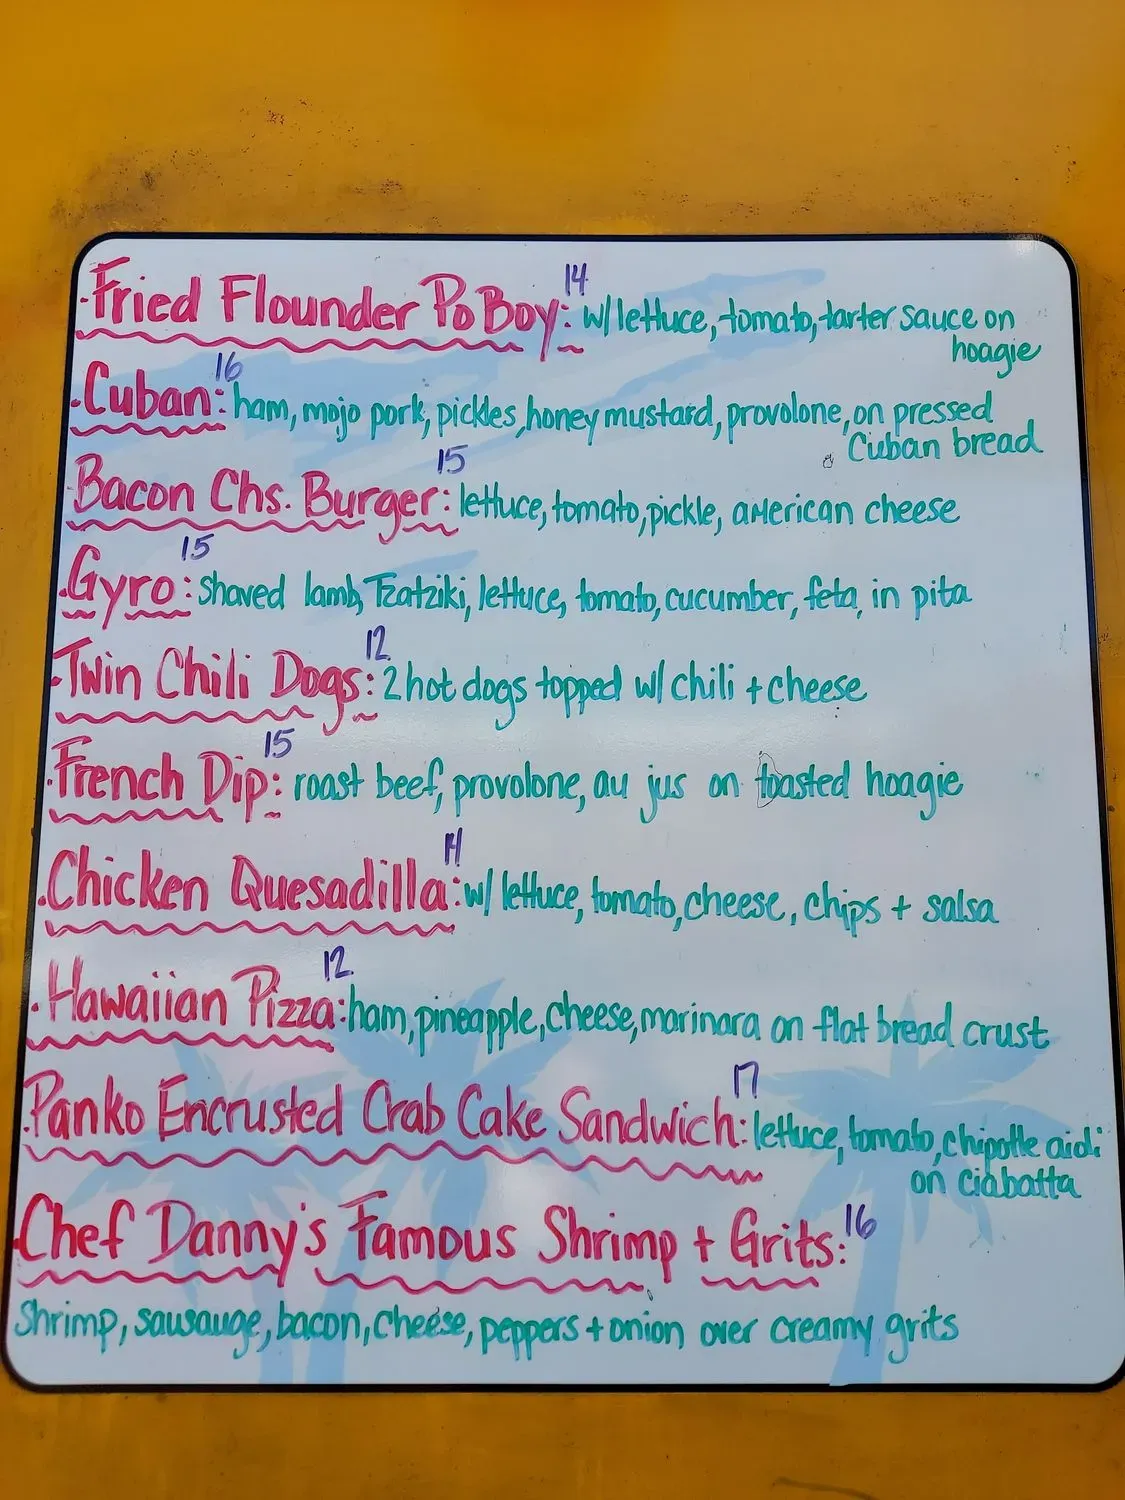 ·Fried Flounder Po Boy: 14 w/ lettuce, tomato, tarter sauce on
hoagie
·Cuban: 16 ham, mojo pork, pickles, honey mustard, provolone, on pressed
Cuban bread
·Bacon Chs. Burger: 15 lettuce, tomato, pickle, american cheese
·Gyro: 15 shaved lamb, Tzatziki, lettuce, tomato, cucumber, feta, in pita
·Twin Chili Dogs: 12 2 hot dogs topped w/ chili + cheese
·French Dip: 15 roast beef, provolone, au jus on toasted hoagie
·Chicken Quesadilla: 14 w/ lettuce, tomato, cheese, chips + salsa
·Hawaiian Pizza: 12 ham, pineapple, cheese, marinara on flat bread crust
·Panko Encrusted Crab Cake Sandwich: 17 lettuce, tomato, chipotle aioli
on ciabatta
·Chef Danny's Famous Shrimp + Grits: 16
Shrimp, sausauge, bacon, cheese, peppers + onion over creamy grits